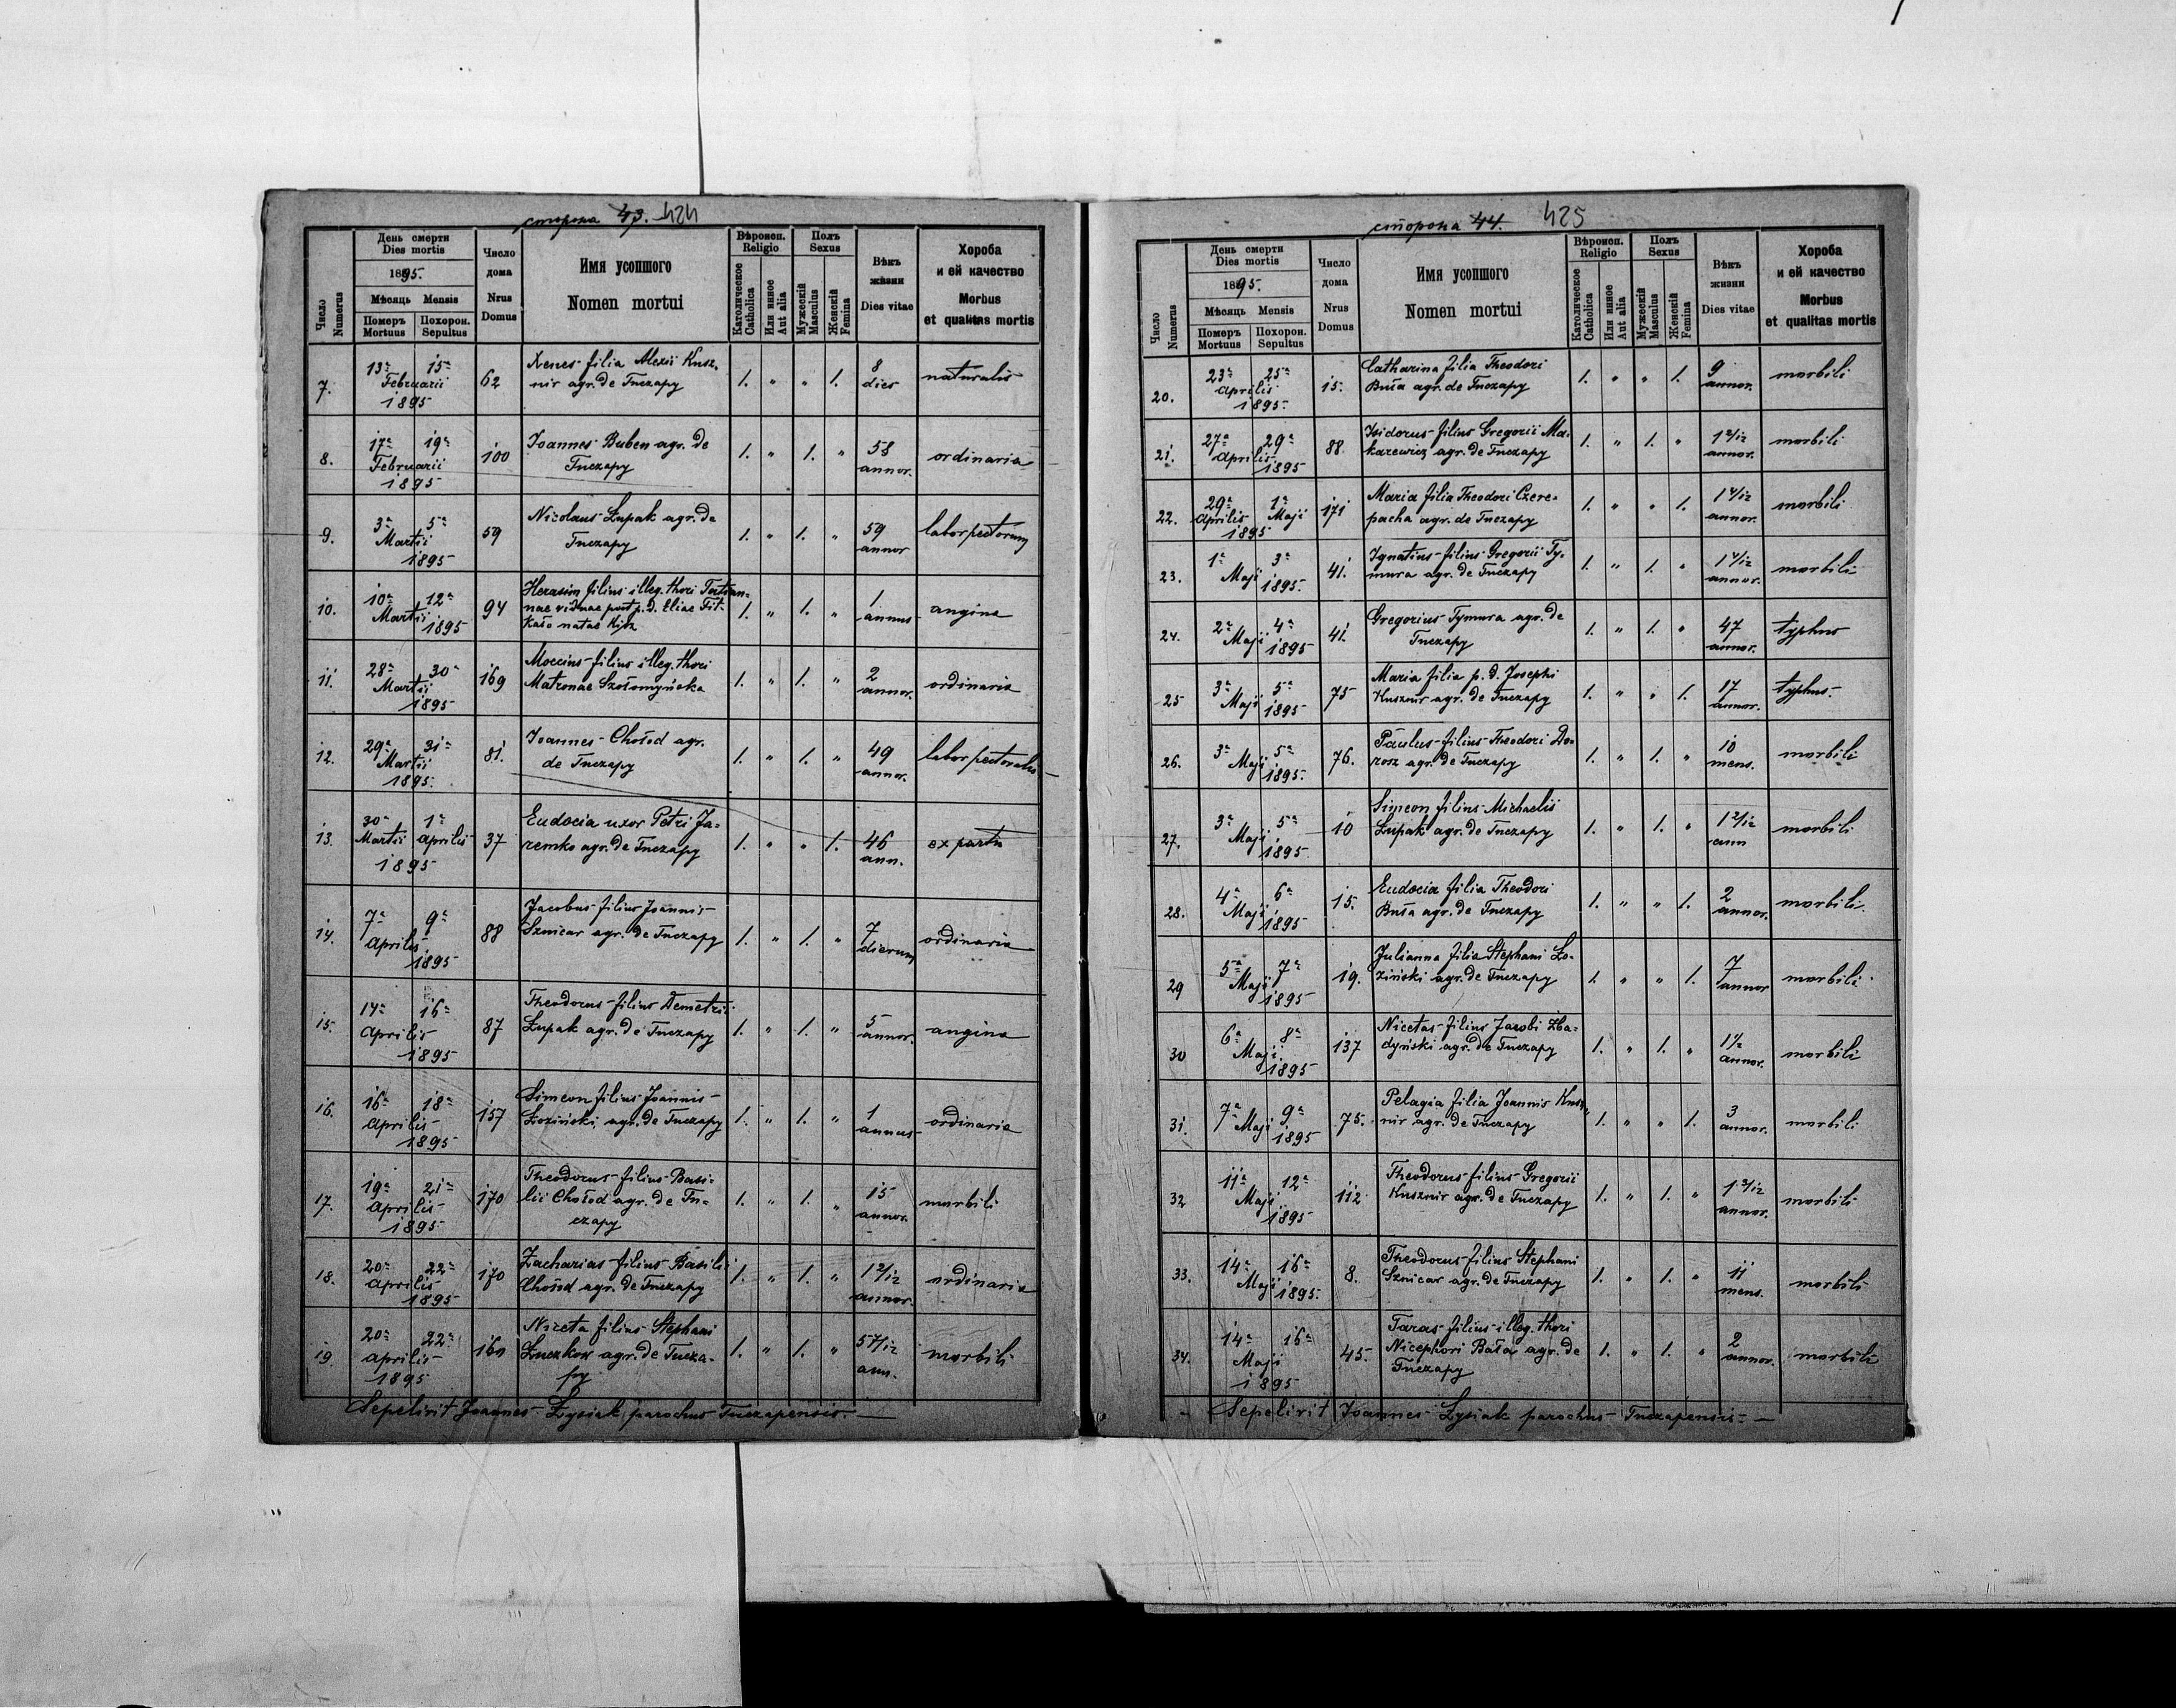 сторона 43. 424
День смерти
Dies mortis
1895.
Мѣсяць Mensis
Число
Numerus
Померъ
Mortuus
Похорон.
Sepultus
Число
дома
Nrus
Domus
Имя усопшого
Nomen mortui
Вѣроисп.
Religio
Католическое
Catholica
Или инное
Aut alia
Полъ
Sexus
Мужескій
Masculus
Женскій
Femina
Вѣкъ
жизни
Dies vitae
Хороба
и ей качество
Morbus
et qualitas mortis
7. 13a 15a Februarii 1895 62 Xenes filia Alexii Kusz-
nir agr. de Tuczapy 1. " " 1. 8 dies naturalis
8. 17a 19a Februarii 1895 100 Joannes Buben agr. de
Tuczapy 1. " 1. " 58 annor. ordinaria
9. 3a 5a Martii 1895 59 Nicolaus Łupak agr. de
Tuczapy 1. " 1. " 59 annor labor pectorum
10. 10a 12a Martii 1895 94 Herasim filius illeg. thori Tatian-
nae viduae post p. d. Eliae Fit-
kało natae 1. " 1. " 1 annus angina
11. 28a 30a Martii 1895 169 Moccius filius illeg. thori
Matronae Szołomyńska 1. " 1. " 2 annor. ordinaria
12. 29a 31a Martii 1895. 81. Joannes Chołod agr.
de Tuczapy 1. " 1. " 49 annor. labor pectoralis
13. 30a Martii 1a Aprilis 1895 37 Eudocia uxor Petri Ja-
remko agr. de Tuczapy 1. " " 1. 46 ann. ex partu
14. 7a 9a Aprilis 1895 88 Jacobus filius Joannis
Sznicar agr. de Tuczapy 1. " 1. " 7 dierum ordinaria
15. 14a 16a Aprilis 1895 87 Theodorus filius Demetrii
Łupak agr. de Tuczapy 1. " 1. " 5 annor. angina
16. 16a 18a Aprilis 1895 157 Simeon filius Joannis
Łoziński agr. de Tuczapy 1. " 1. " 1 annus ordinaria
17. 19a 21a Aprilis 1895 170 Theodorus filius Basi-
lii Chołod agr. de Tu-
czapy 1. " 1. " 15 annor. morbili
18. 20a 22a Aprilis 1895 170 Zacharias filius Basili
Chołod agr. de Tuczapy 1. " 1. " 1 2/12 annor. ordinaria
19. 20a 22a Aprilis 1895 160 Niceta filius Stephani
Łuczkow agr. de Tucza-
py 1. " 1. " 5 7/12 ann. morbili
Sepelivit Joannes Łysiak parochus Tuczapensis.
сторона 44. 425
День смерти
Dies mortis
1895.
Мѣсяць Mensis
Число
Numerus
Померъ
Mortuus
Похорон.
Sepultus
Число
дома
Nrus
Domus
Имя усопшого
Nomen mortui
Вѣроисп.
Religio
Католическое
Catholica
Или инное
Aut alia
Полъ
Sexus
Мужескій
Masculus
Женскій
Femina
Вѣкъ
жизни
Dies vitae
Хороба
и ей качество
Morbus
et qualitas mortis
20. 23a 25a Aprilis 1895. 15. Catharina filia Theodori
Buła agr. de Tuczapy 1. " " 1. 9 annor. morbili
21. 27a 29a Aprilis 1895 88. Isidorus filius Gregorii Ma-
karewicz agr. de Tuczapy 1. " 1. " 1 2/12 annor. morbili
22. 29a Aprilis 1a Maji 1895 171 Maria filia Theodori Czere-
pacha agr. de Tuczapy 1. " " 1. 1 4/12 annor. morbili
23. 1a 3a Maji 1895. 41. Ignatius filius Gregorii Ty-
mura agr. de Tuczapy 1. " 1. " 1 4/12 annor. morbili
24. 2a 4a Maji 1895 41. Gregorius Tymura agr. de
Tuczapy 1. " 1. " 47 annor. typhus
25 3a 5a Maji 1895 75 Maria filia p. d. Josephi
Kusznir agr. de Tuczapy 1. " " 1. 17 annor. typhus
26. 3a 5a Maji 1895. 76. Paulus filius Theodori Do-
rosz agr. de Tuczapy 1. " 1. " 10 mens. morbili
27. 3a 5a Maji 1895 10 Simeon filius Michaelis
Łupak agr. de Tuczapy 1. " 1. " 1 2/12 ann morbili
28. 4a 6a Maji 1895 15. Eudocia filia Theodori
Buła agr. de Tuczapy 1. " " 1. 2 annor. morbili.
29 5a 7a Maji 1895 19. Julianna filia Stephani Ło-
ziński agr. de Tuczapy 1. " " 1. 7 annor morbili
30 6a 8a Maji 1895 137 Nicetas filius Jacobi Zba-
dyński agr. de Tuczapy 1. " 1. " 1 1/2 annor. morbili
31. 7a 9a Maji 1895 75. Pelagia filia Joannis Kusz-
nir agr. de Tuczapy 1. " " 1. 3 annor. morbili
32 11a 12a Maji 1895 112 Theodorus filius Gregorii
Kusznir agr. de Tuczapy 1. " 1. " 1 3/12 annor. morbili
33. 14a 16a Maji 1895. 8. Theodorus filius Stephani
Sznicar agr. de Tuczapy 1. " 1. " 11 mens. morbili
34. 14a 16a Maji 1895 45. Taras filius illeg. thori
Nicephori Bała agr. de
Tuczapy 1. " 1. " 2 annor. morbili
Sepelivit Joannes Łysiak parochus Tuczapensis